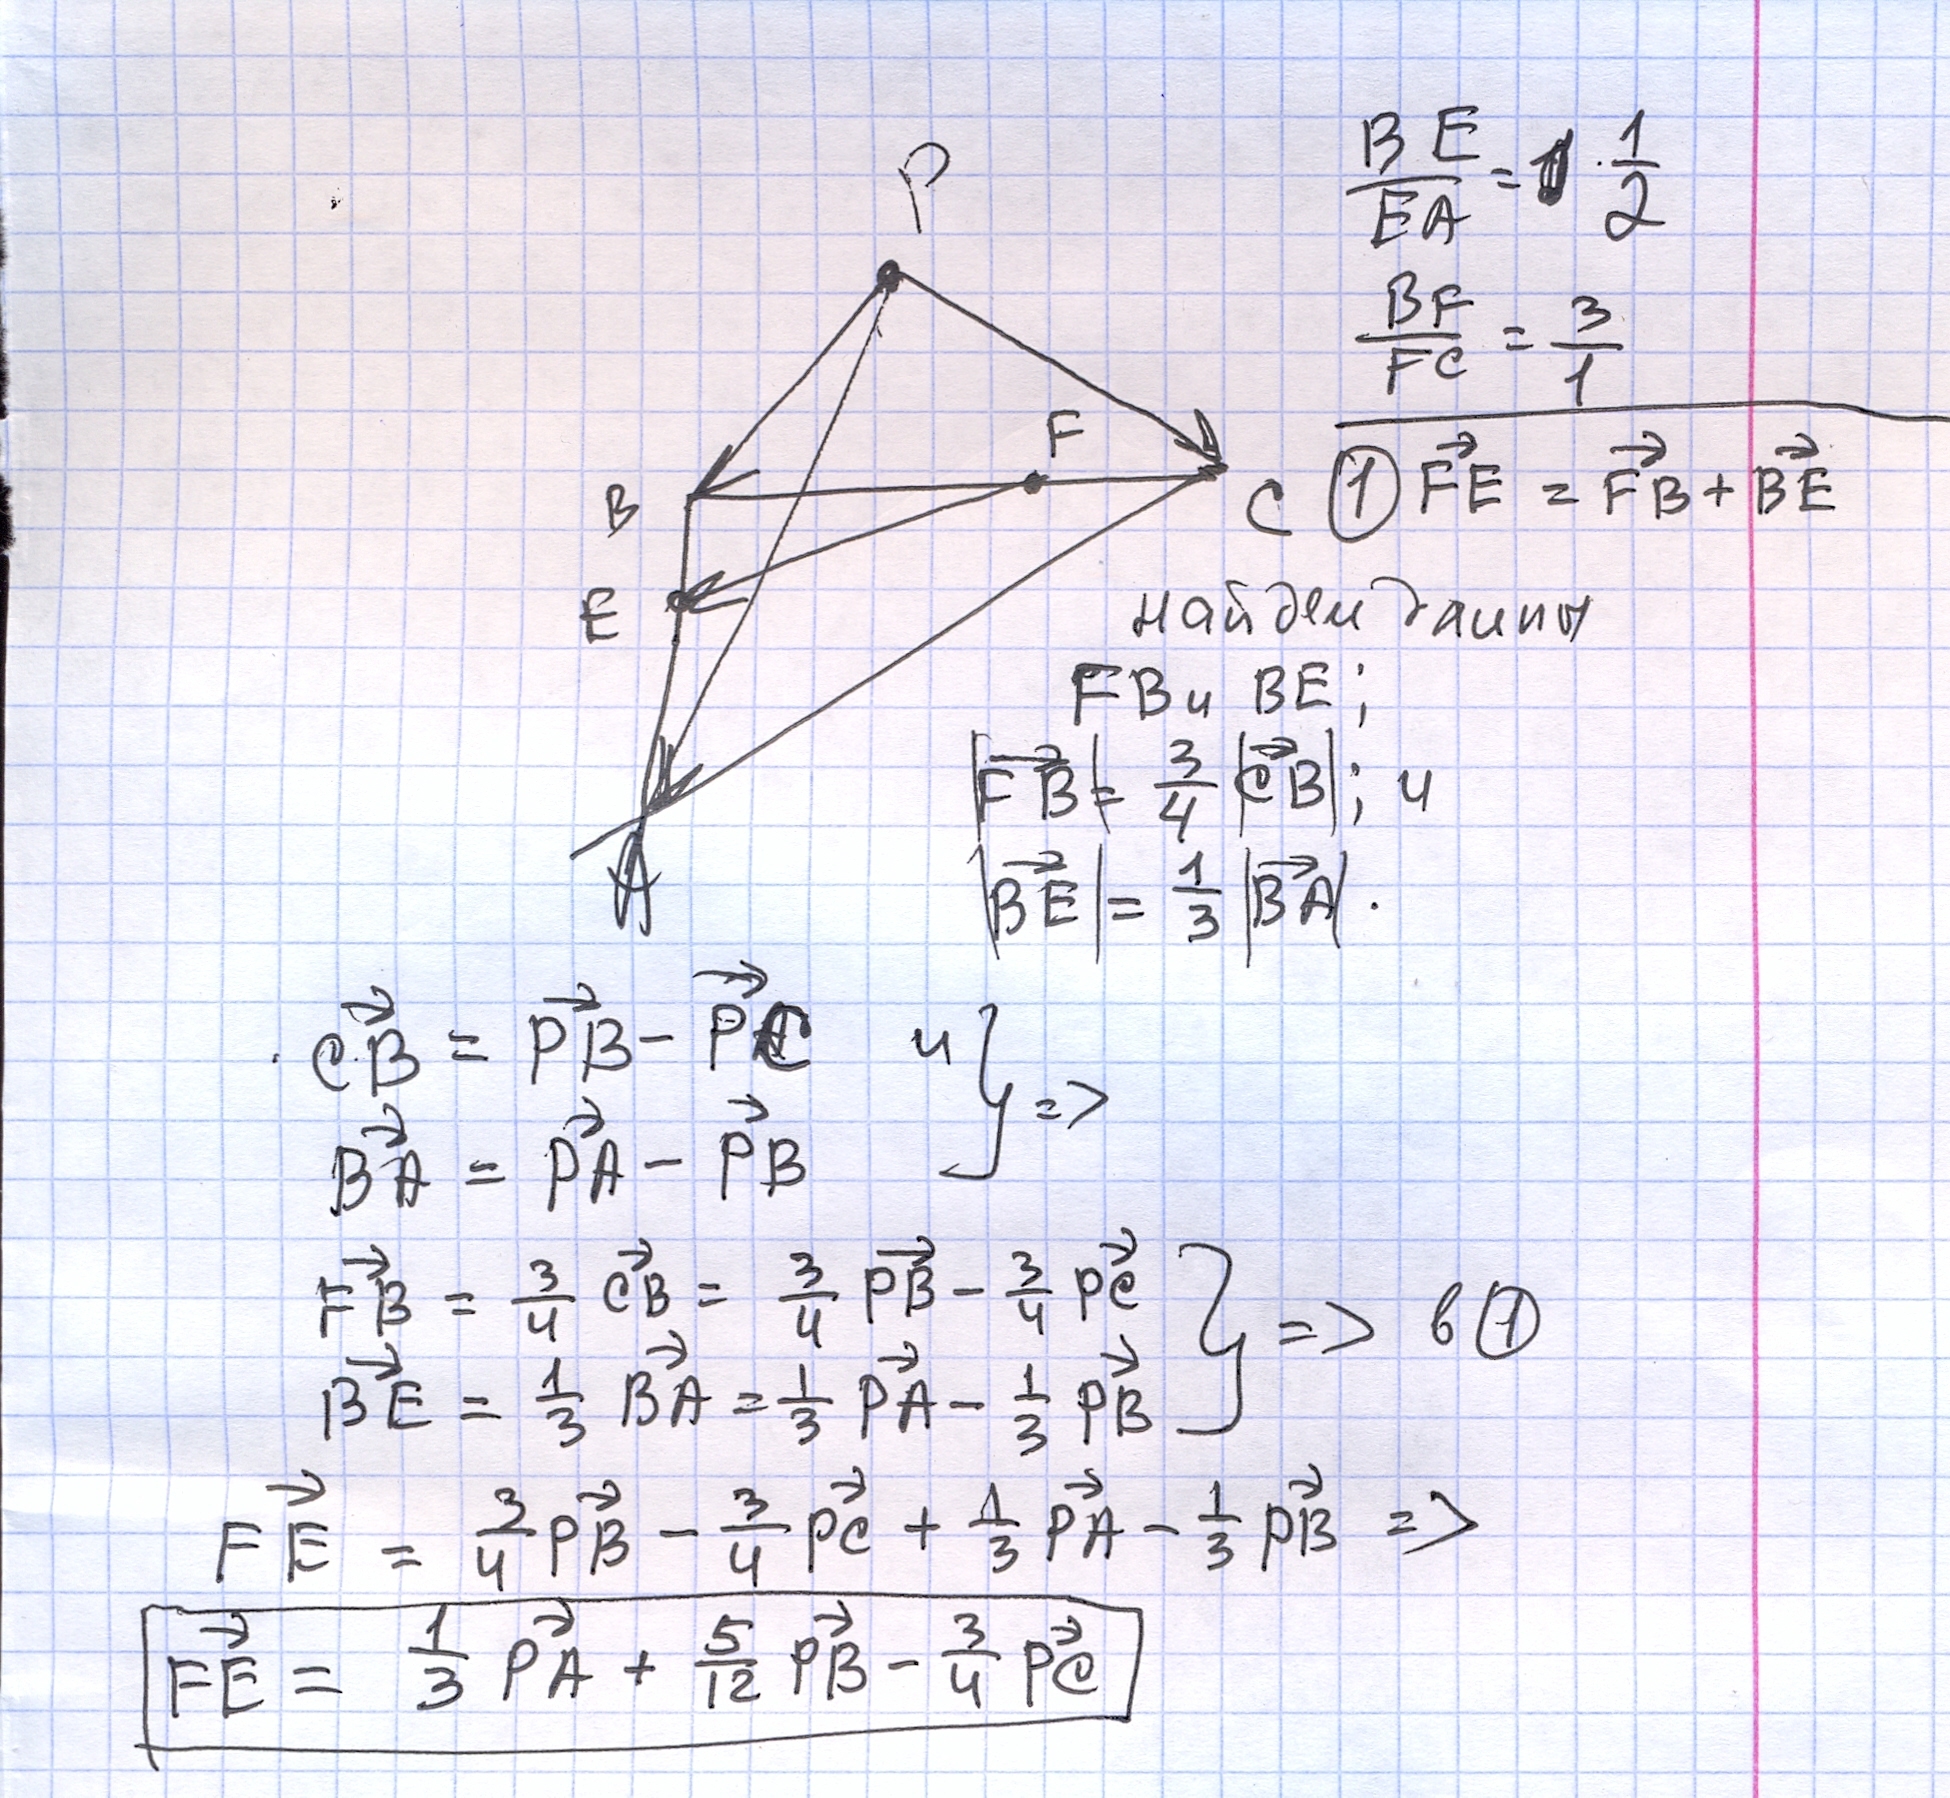 P
B
E
F
C
A
BE/EA = 1/2
BF/FC = 3/1
① F⃗E = F⃗B + B⃗E
найдем длины
FB и BE;
|F⃗B| = 3/4 |C⃗B|; и
|B⃗E| = 1/3 |B⃗A|.
C⃗B = P⃗B - P⃗C и } =>
B⃗A = P⃗A - P⃗B
F⃗B = 3/4 C⃗B = 3/4 P⃗B - 3/4 P⃗C } => в ①
B⃗E = 1/3 B⃗A = 1/3 P⃗A - 1/3 P⃗B
F⃗E = 3/4 P⃗B - 3/4 P⃗C + 1/3 P⃗A - 1/3 P⃗B =>
F⃗E = 1/3 P⃗A + 5/12 P⃗B - 3/4 P⃗C